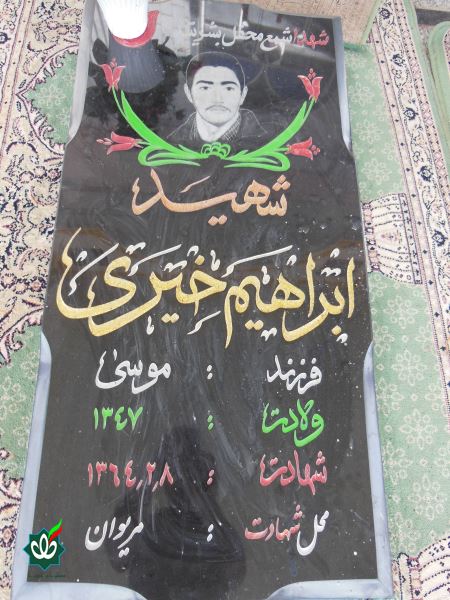 شهدا شمع محفل بشریتند
شهید
ابراهیم خیری
فرزند : موسی
ولادت : ۱۳۴۷
شهادت : ۱۳۶۴٫۲٫۸
محل شهادت : مریوان